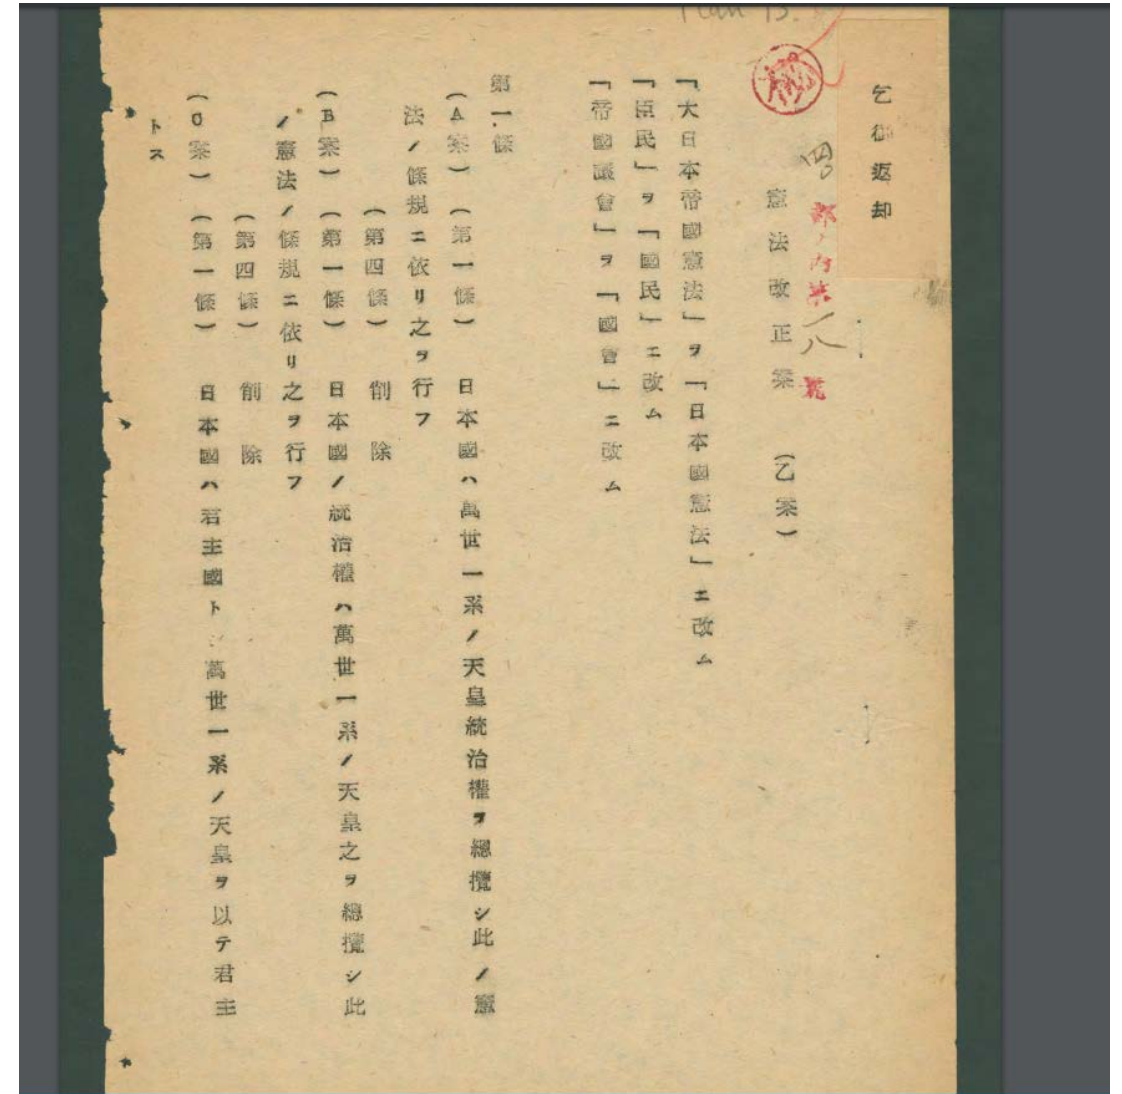 乞御返却
四〇部ノ内第一八號
秘
憲法改正案 (乙案)
「大日本帝國憲法」ヲ「日本國憲法」ニ改ム
「臣民」ヲ「國民」ニ改ム
「帝國議會」ヲ「國會」ニ改ム
第一條
(A案)(第一條) 日本國ハ萬世一系ノ天皇統治權ヲ總攬シ此ノ憲
法ノ條規ニ依リ之ヲ行フ
(第四條) 削除
(B案)(第一條) 日本國ノ統治權ハ萬世一系ノ天皇之ヲ總攬シ此
ノ憲法ノ條規ニ依リ之ヲ行フ
(第四條) 削除
(C案)(第一條) 日本國ハ君主國トシ萬世一系ノ天皇ヲ以テ君主
トス